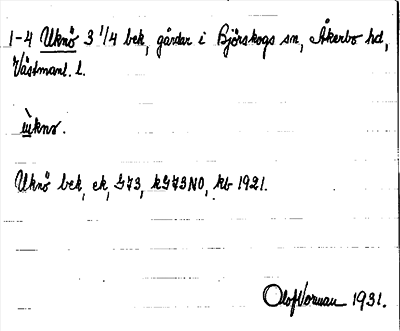 1-4 Uknö 3 1/4 bek, gårdar i Björskogs sn, Åkerbo hd,
Västmanl. l.
ùkn .
Uknö bek, ek, G73, kG73NO, kb 1921.
Olof Vorman 1931.